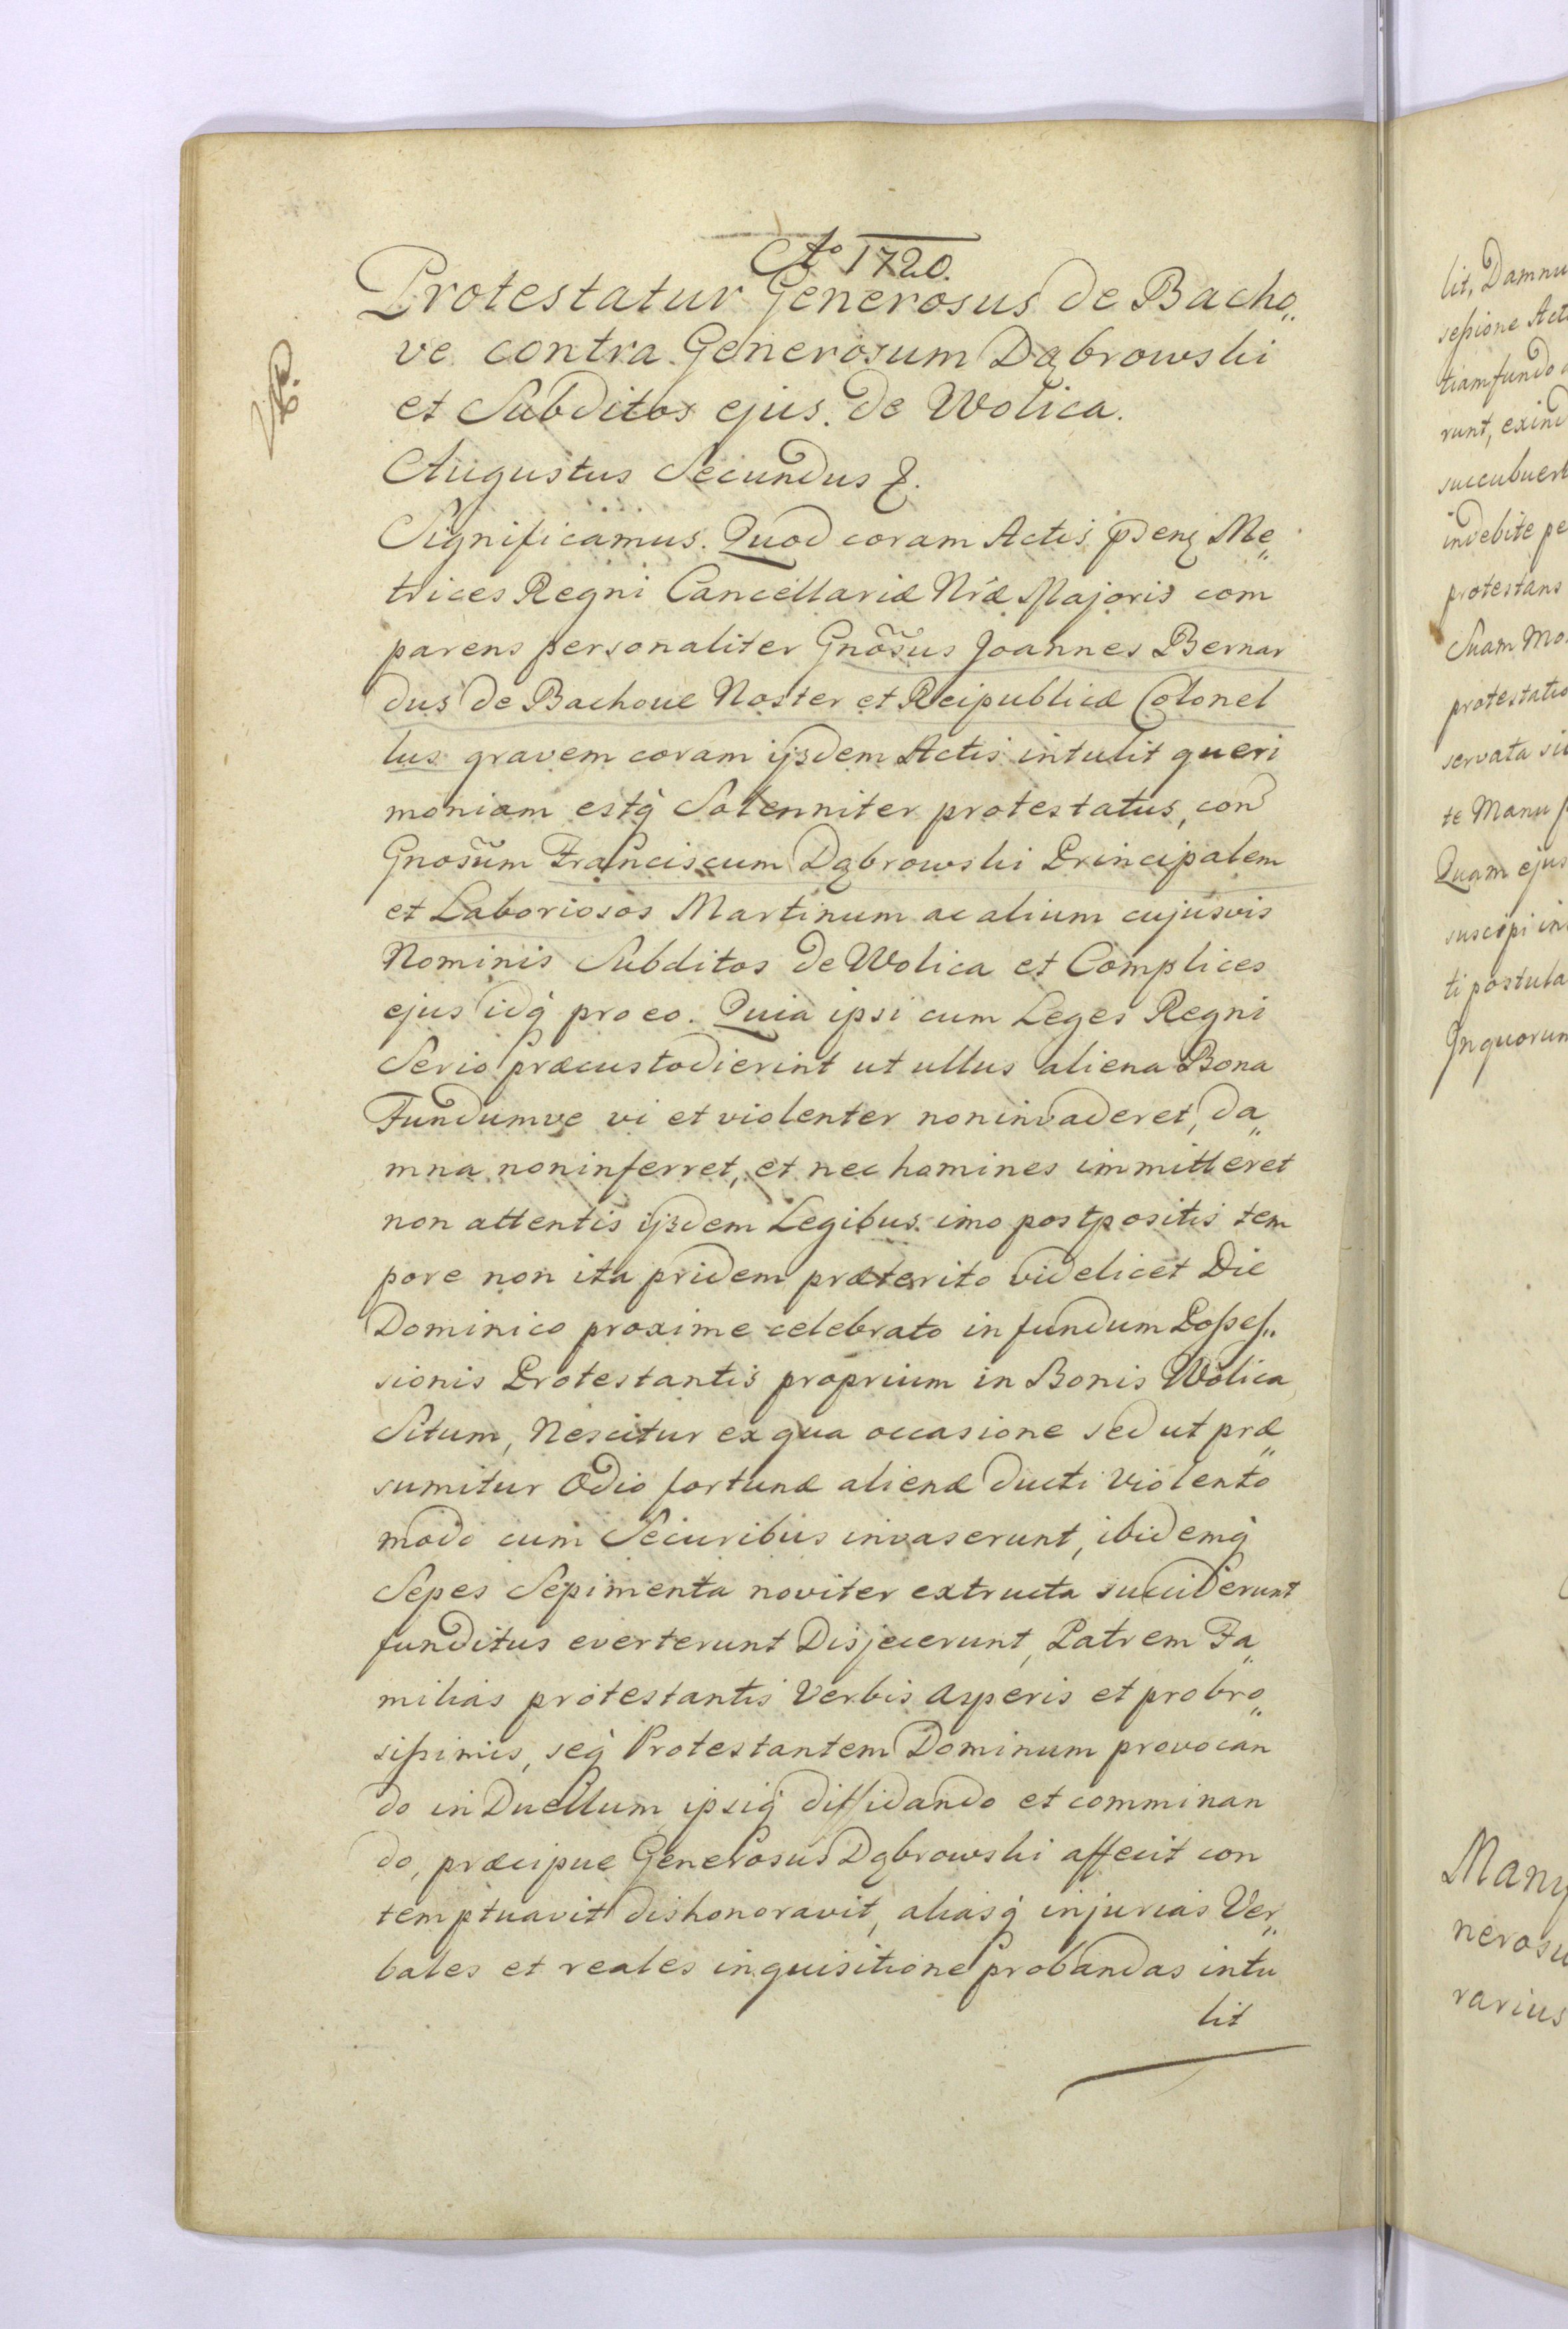 Ao 1720.
Protestatur Generosus de Bacho„
ve contra Generosum Dąbrowski
et Subditos ejus de Wolica.
Augustus Secundus &.
Significamus. Quod coram Actis Me„
trices Regni Cancellariæ Nræ Majoris com
parens personaliter Gnõsus Joannes Bernar
dus de Bachove Noster et Reipublicæ Colonel
lus gravem coram ijsdem Actis intulit queri
moniam estq̀ Solenniter protestatus, con
Gnosũm Franciscum Dąbrowski Principalem
et Laboriosos Martinum ac alium cujusvis
Nominis Subditos de Wolica et Complices
ejus idq̀ pro eo. Quia ipsi cum Leges Regni
Serio præcustodierint ut ullus aliena Bona
Fundumve vi et violenter non invaderet, da„
mna non inferret, et nec homines immitteret
non attentis ijsdem Legibus imo postpositis tem
pore non ita pridem præterito videlicet Die
Dominico proxime celebrato in fundum Posses„
sionis Protestantis proprium in Bonis Wolica
Situm, Nescitur ex qua occasione sed ut præ„
sumitur Odio fortunæ alienæ ducti Violento
modo cum Securibus invaserunt, ibidemq̀
Sepes Sepimenta noviter extructa succiderunt
funditus everterunt Disjecerunt, Patrem Fa„
milias protestantis Verbis Asperis et probro„
sissimis, seq̀ Protestantem Dominum provocan
do in Duellum ipsiq̀ diffidando et comminan
do, præcipue Generosus Dąbrowski affecit con
temptuavit dishonoravit, aliasq̀ injurias Ver„
bales et reales inquisitione probandas intu
lit
lit, Damnu
sessione Act
tiam fundo
runt, exind
succubuer
indebite pe
protestans
Suam Mo
protestatio
servata
te Manu
Quam ejus
suscipi in
ti postula
In quorum
Manu
neros
rarius